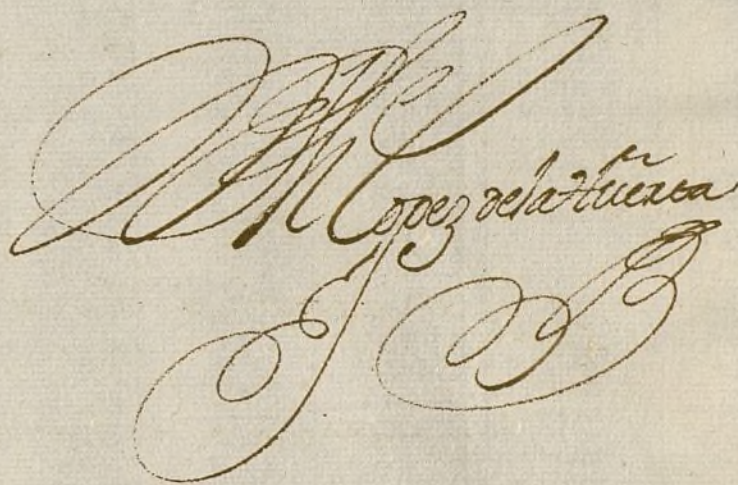 M.l Lopez de la Huerta